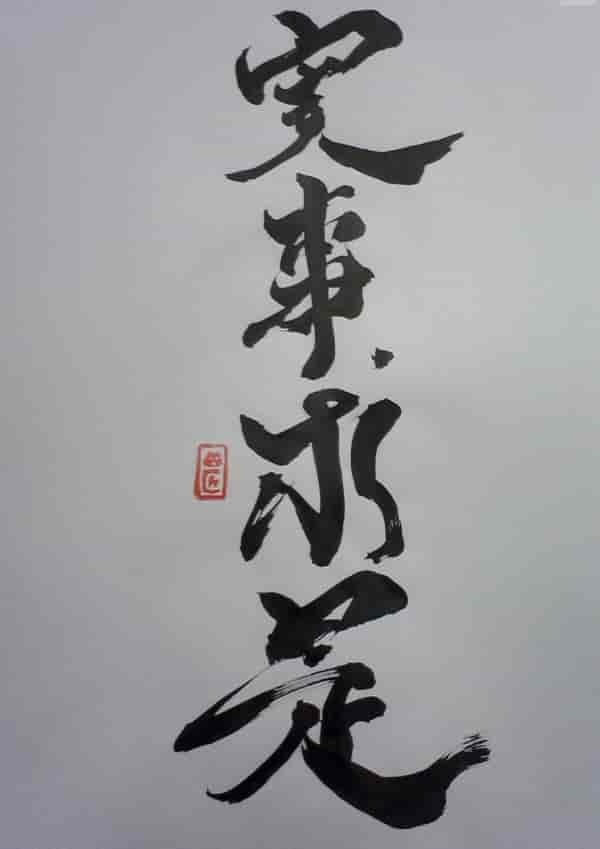 实事求是